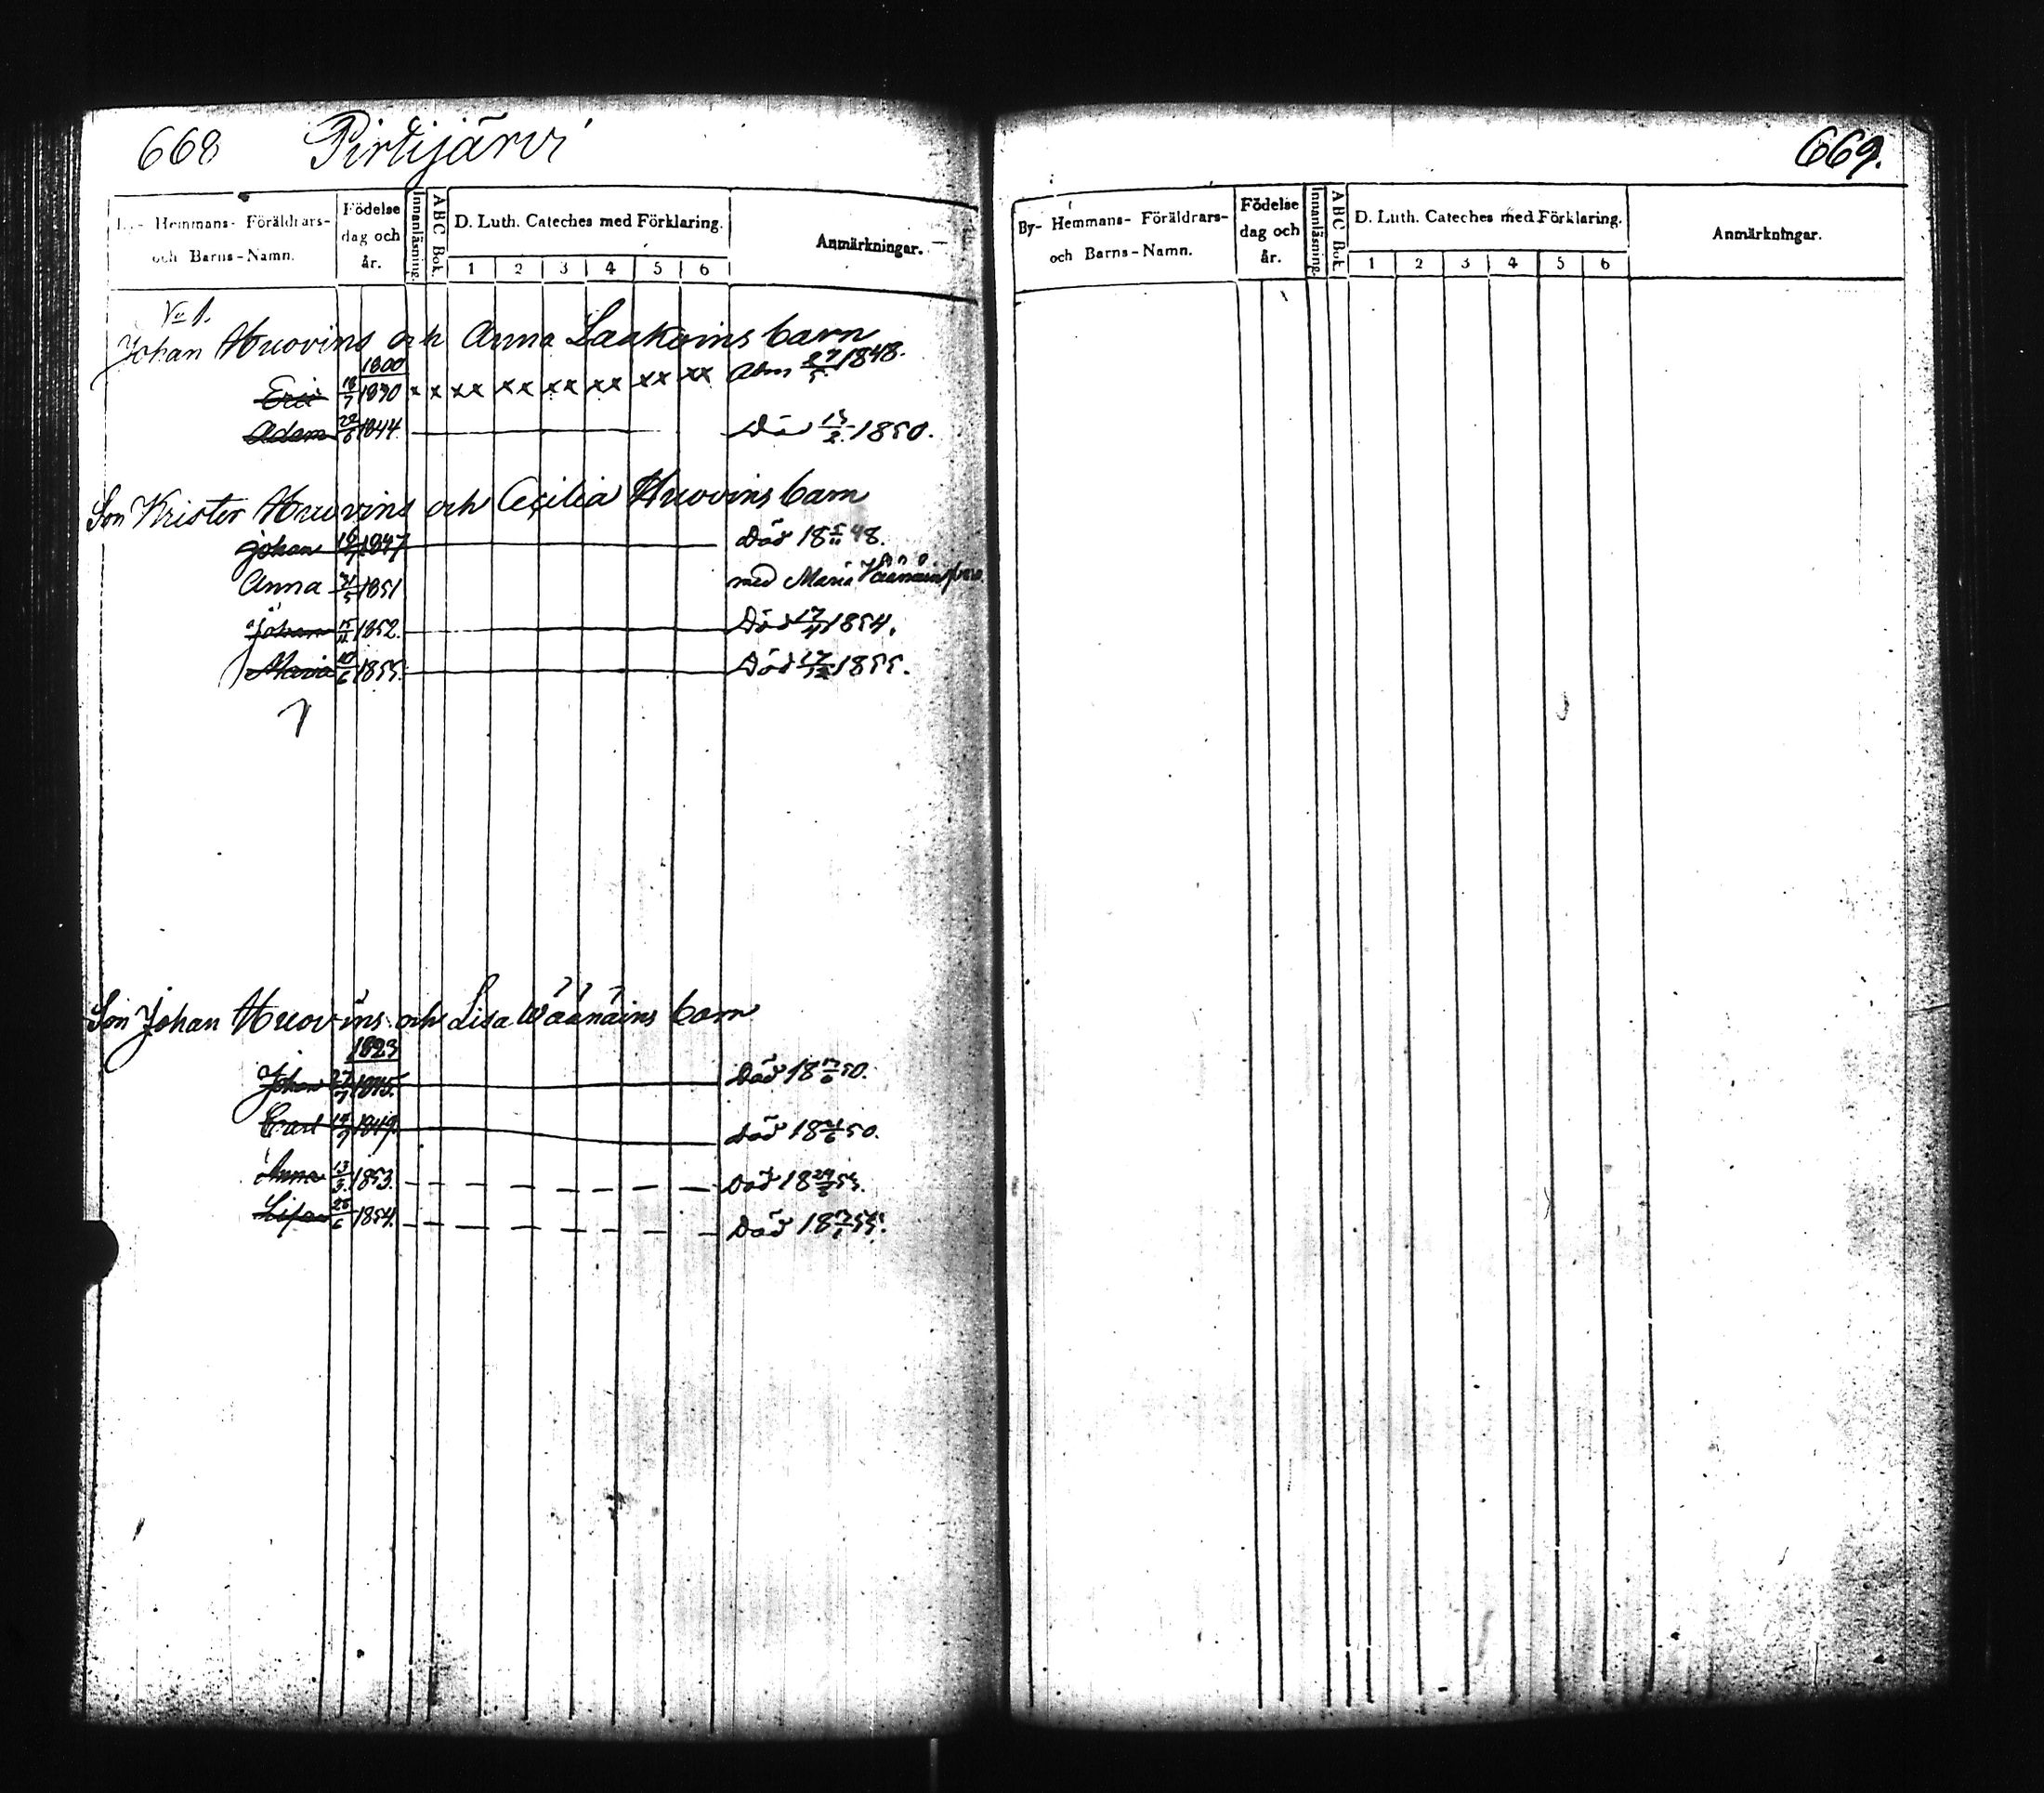 668 Pirtijärvi
By- Hemmans- Föräldrars- och Barns-Namn. Födelse dag och år. Innanläsning. ABC Bok. D. Luth. Cateches med Förklaring. 1 2 3 4 5 6 Anmärkningar.
No 1.
Johan Huovins och Anna Laakoins barn
1800
Eric 18/7 1830 x x xx xx xx xx xx xx Adm 27/5 1848.
Adam 1844. Död 15/2 1850.
Son Krister Huovins och Cecilia Huovins barn
Johan 1847 Död 18 48.
Anna 1851 med Maria
Johan 15/11 1852. Död 1854.
Maria 10/6 1855. Död 1855.
Son Johan Huovins och Lisa Wäänäins barn
1823
Johan 1845. Död 18 50.
Carl 1849. Död 18 50.
Anna 13/3 1853. Död 18 29/8 55.
Lisa 26/6 1854. Död 18 55.
669.
By- Hemmans- Föräldrars- och Barns-Namn. Födelse dag och år. Innanläsning. ABC Bok. D. Luth. Cateches med Förklaring. 1 2 3 4 5 6 Anmärkningar.